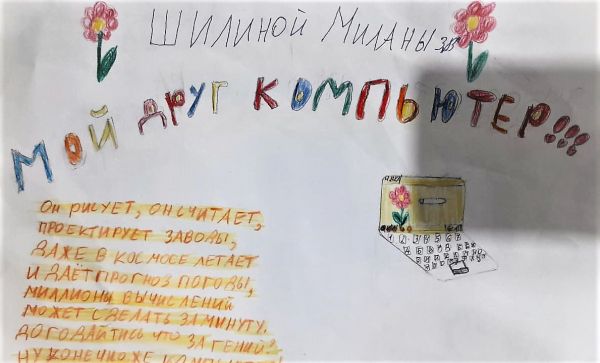 Шилиной Миланы 3в
Мой друг компьютер!!!
Он рисует, он считает,
проектирует заводы,
даже в космосе летает
и даёт прогноз погоды,
миллионы вычислений
может сделать за минуту.
догодайтись что за гений?
ну конечно же компьютер!